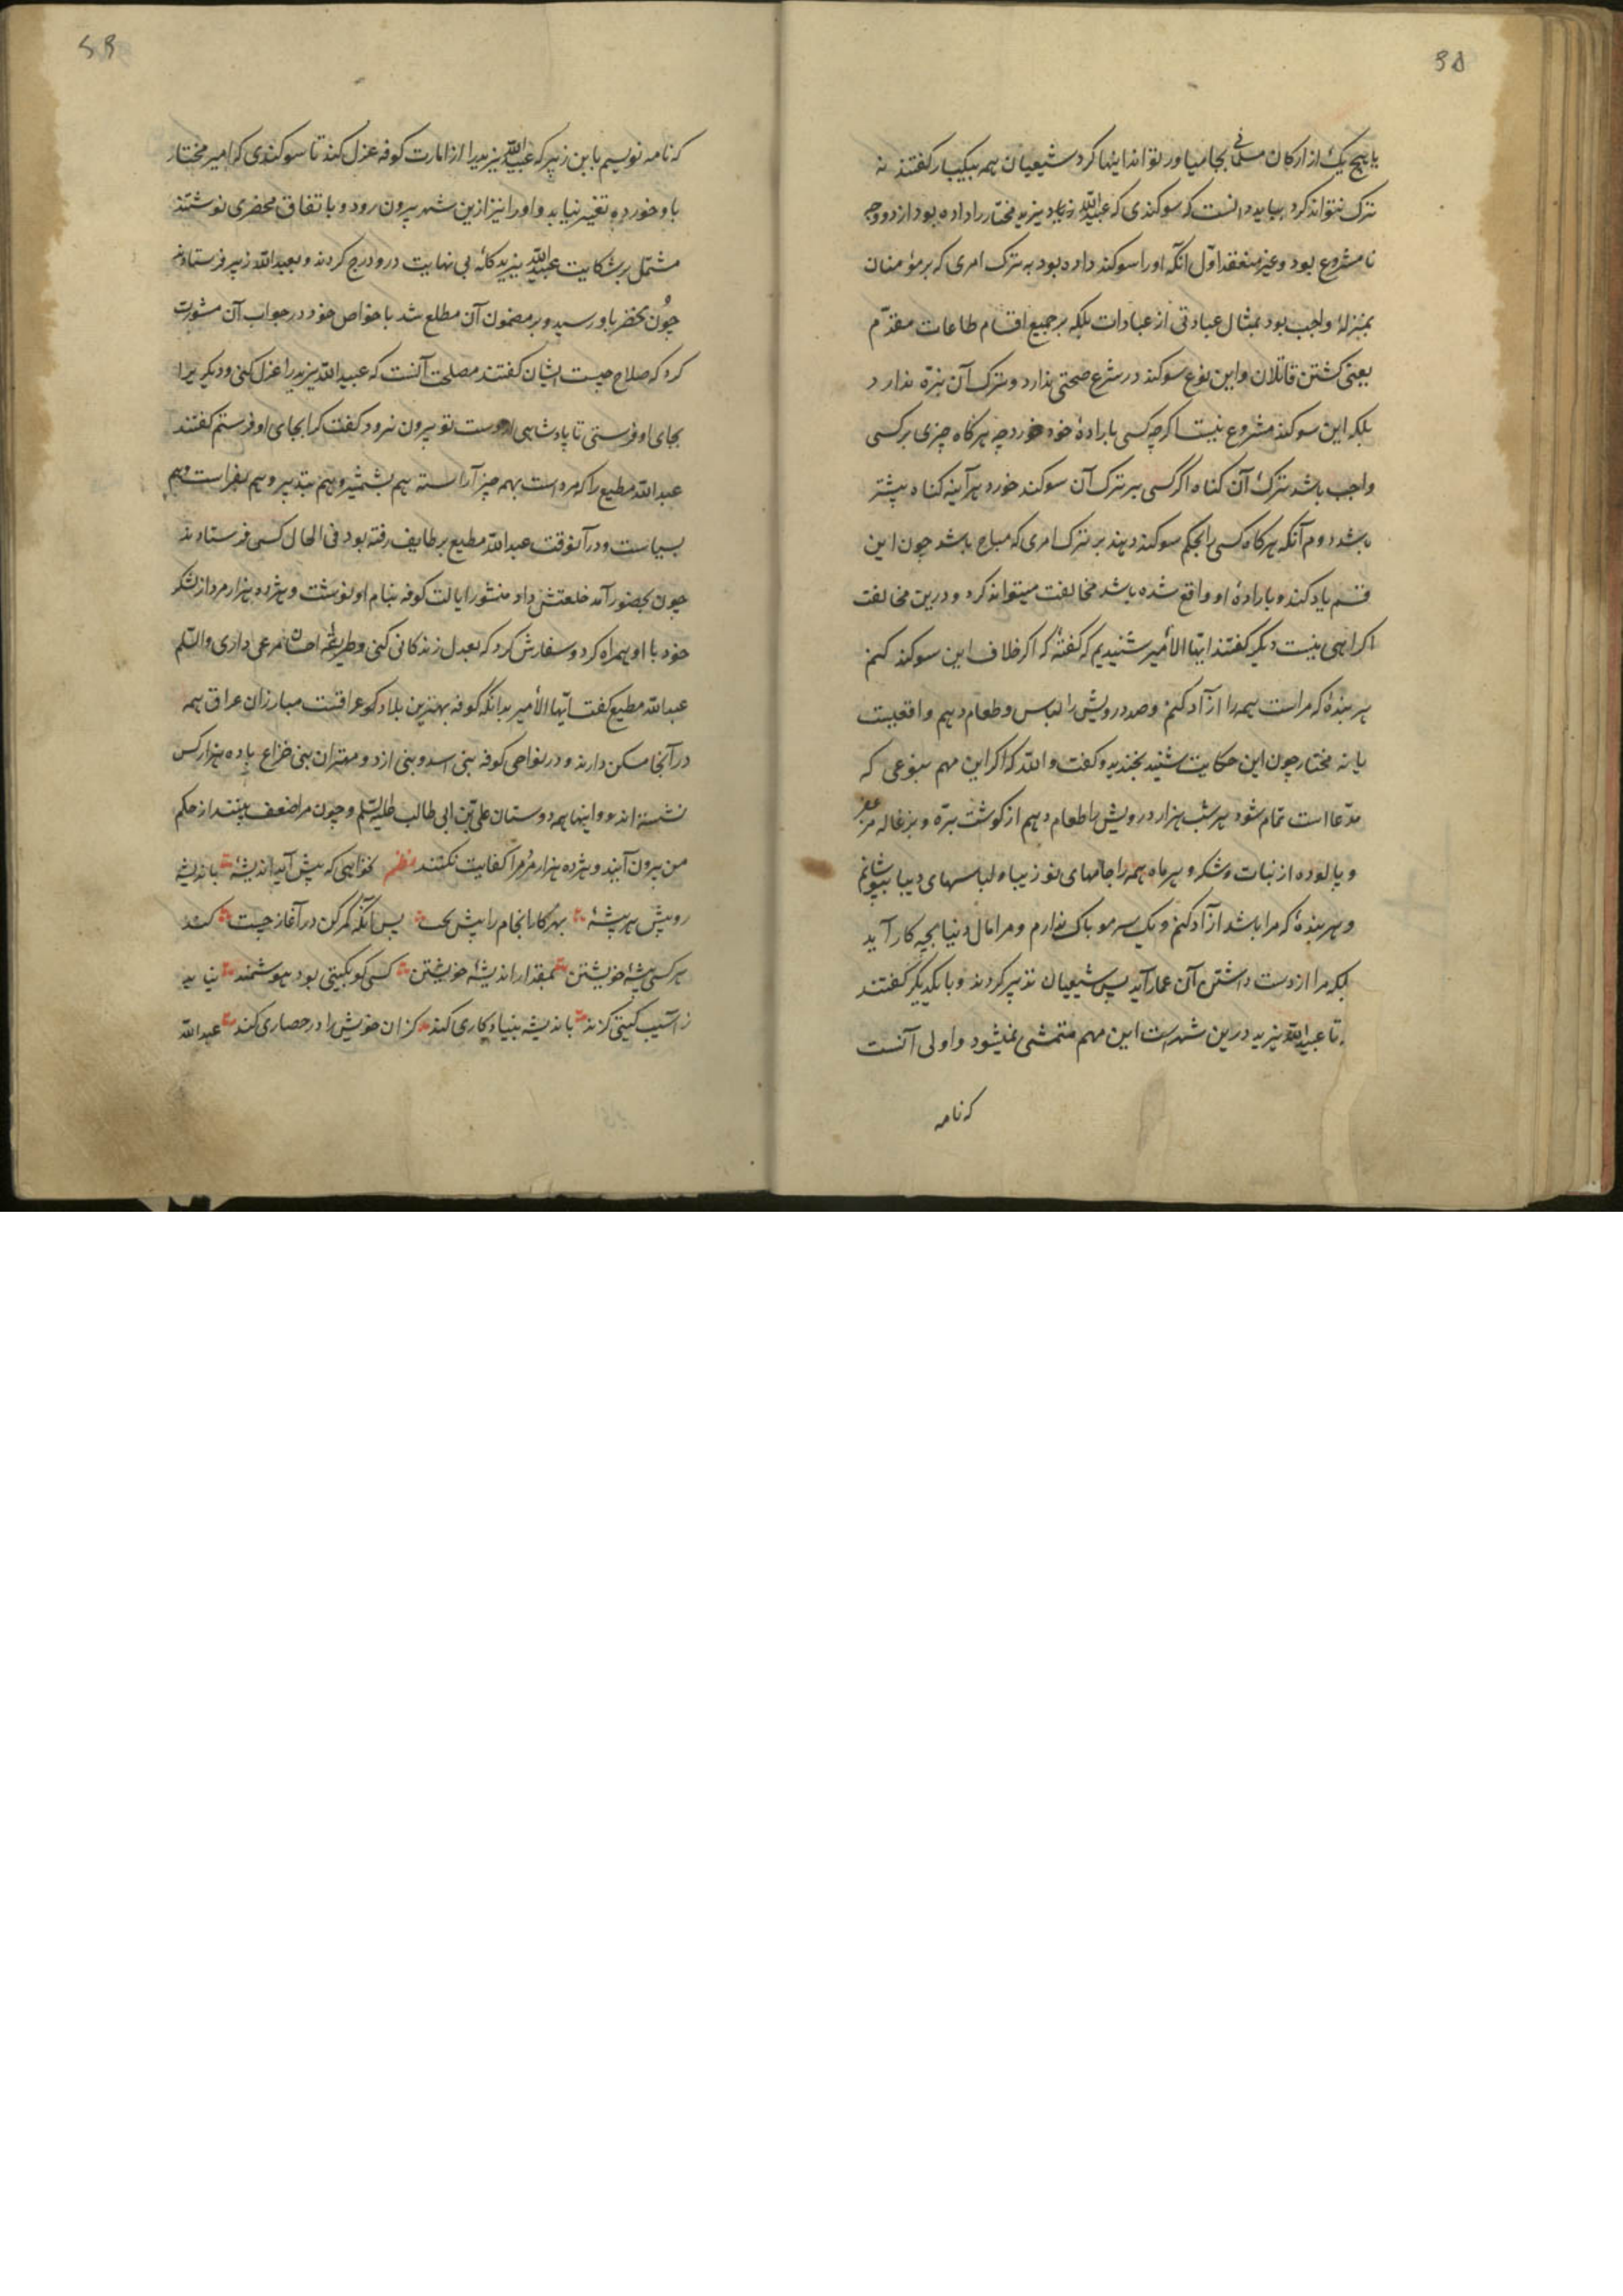 یا هیچ یک از ارکان مسلمانی بجا میاور تواند اینها کرد شیعیان همه بیکبار گفتند نه
ترک نتواند کرد بباید دانست که سوکندی که عبیدالله زیاد یزید مختار را داده بود از دو وجه
نامشروع بود و غیر منعقد اول آنکه او را سوکند داده بود به ترک امری که بر مؤمنان
بمنزلهٔ واجب بود بمثال عبادتی از عبادات بلکه بر جمیع اقسام طاعات مقدّم
یعنی کشتن قاتلان و این نوع سوکند در شرع صحتی ندارد و ترک آن بزه ندارد
بلکه این سوکند مشروع نیست اکرچه کسی بارادهٔ خود خورد چه هرکاه چیزی بر کسی
واجب باشد ترک آن کناه اکر کسی بر ترک آن سوکند خورد هرآینه کناه بیشتر
باشد دوم آنکه هرکاه کسی را بحکم سوکند دهند بر ترک امری که مباح باشد چون این
قسم یاد کند و بارادهٔ او واقع شده باشد مخالفت میتواند کرد و درین مخالفت
اکراهی نیست دیکر کفتند ایها الأمیر شنیدیم که کفتهٔ که اکر خلاف این سوکند کنم
هر بندهٔ که مراست همه را آزاد کنم و صد درویش را لباس و طعام دهم واقعیست
یا نه مختار چون این حکایت شنید بخندید و کفت والله که اکر این مهم بنوعی که
مدّعا است تمام شود هر شب هزار درویش را طعام دهم از کوشت برّه و بزغاله
و پالوده از نبات و شکر و هر ماه همه را جامهای نو زیبا و لباسهای دیبا بپوشانم
و هر بندهٔ که مرا باشد آزاد کنم و یک سر مو باک ندارم و مرا مال دنیا بچه کار آید
بلکه مرا از دست داشتن آن عار آید پس شیعیان تدبیر کردند و با یکدیکر کفتند
تا عبیدالله یزید درین شهرست این مهم متمشی نمیشود و اولی آنست
که نامه
که نامه نویسیم بابن زبیر که عبیدالله یزید را از امارت کوفه عزل کند تا سوکندی که امیر مختار
با و خورده تغییر نیابد و او را نیز ازین شهر بیرون رود و باتفاق محضری نوشتند
مشتمل بر شکایت عبیدالله یزید کله بی نهایت درو درج کردند و بعبدالله زبیر فرستادند
چون محضر باو رسید و بر مضمون آن مطلع شد با خواص خود در جواب آن مشورت
کرد که صلاح چیست ایشان کفتند مصلحت آنست که عبیدالله یزید را عزل کنی و دیکریرا
بجای او فرستی تا پادشاهی از دست تو بیرون نرود کفت کرا بجای او فرستم کفتند
عبدالله مطیع را که مرد است بهمه چیز آراسته هم بشمشیر و هم بتدبیر و هم بفراست و هم
بسیاست و در آنوقت عبدالله مطیع بر طایف رفته بود فی الحال کسی فرستادند
چون بحضور آمد خلعتش داد منشور ایالت کوفه بنام او نوشت و هژده هزار مرد از لشکر
خود با او همراه کرد و سفارش کرد که بعدل زندکانی کنی و طریقهٔ احسان مرعی داری والسلم
عبدالله مطیع کفت ایّها الأمیر بدانکه کوفه بهترین بلاد کو عراقست مبارزان عراق همه
در آنجا مسکن دارند و در نواحی کوفه بنی اسد و بنی ازد و مهتران بنی خزاع با ده هزار کس
نشسته اند و اینها همه دوستان علی بن ابی طالب علیه السلم و چون مرا ضعف بینند از حکم
من بیرون آیند و هژده هزار مرد مرا کفایت نکنند نظم نخواهی که پیش آید اندیشهٔ باندیشه
رو پیش هر پیشهٔ بهر کار انجام را پیش پس آنکه کمر کن در آغاز چست کند
هر کسی پیشهٔ خویشتن بمقدار اندیشهٔ خویشتن کسی کو بکیتی بود هوشمند نیابد
ز آسیب کیتی کزند باندیشه بنیاد کاری کند کزان خویش را در حصاری کند عبدالله